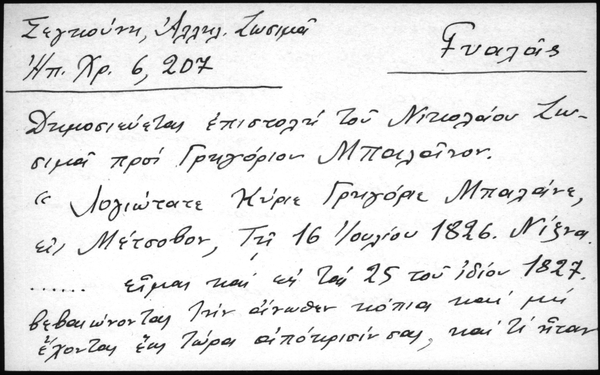 Σεγκούνη, Ἀλληλ. Ζωσιμᾶ
Γυαλᾶς
Ἠπ. Χρ. 6, 207
Δημοσιεύεται ἐπιστολή τοῦ Νικολάου Ζω-
σιμᾶ πρός Γρηγόριον Μπαλαῖνον.
“ Λογιώτατε Κύριε Γρηγόριε Μπαλάνε,
εἰς Μέτσοβον, Τῇ 16 Ἰουλίου 1826. Νίζνα.
...... εἶμαι καί εἰς ταί 25 τοῦ ἰδίου 1827.
βεβαιώνοντας τήν ἄνωθεν κόπια καί μή
ἔχοντας ἕως τώρα ἀπόκρισίν σας, καί τί ἦταν